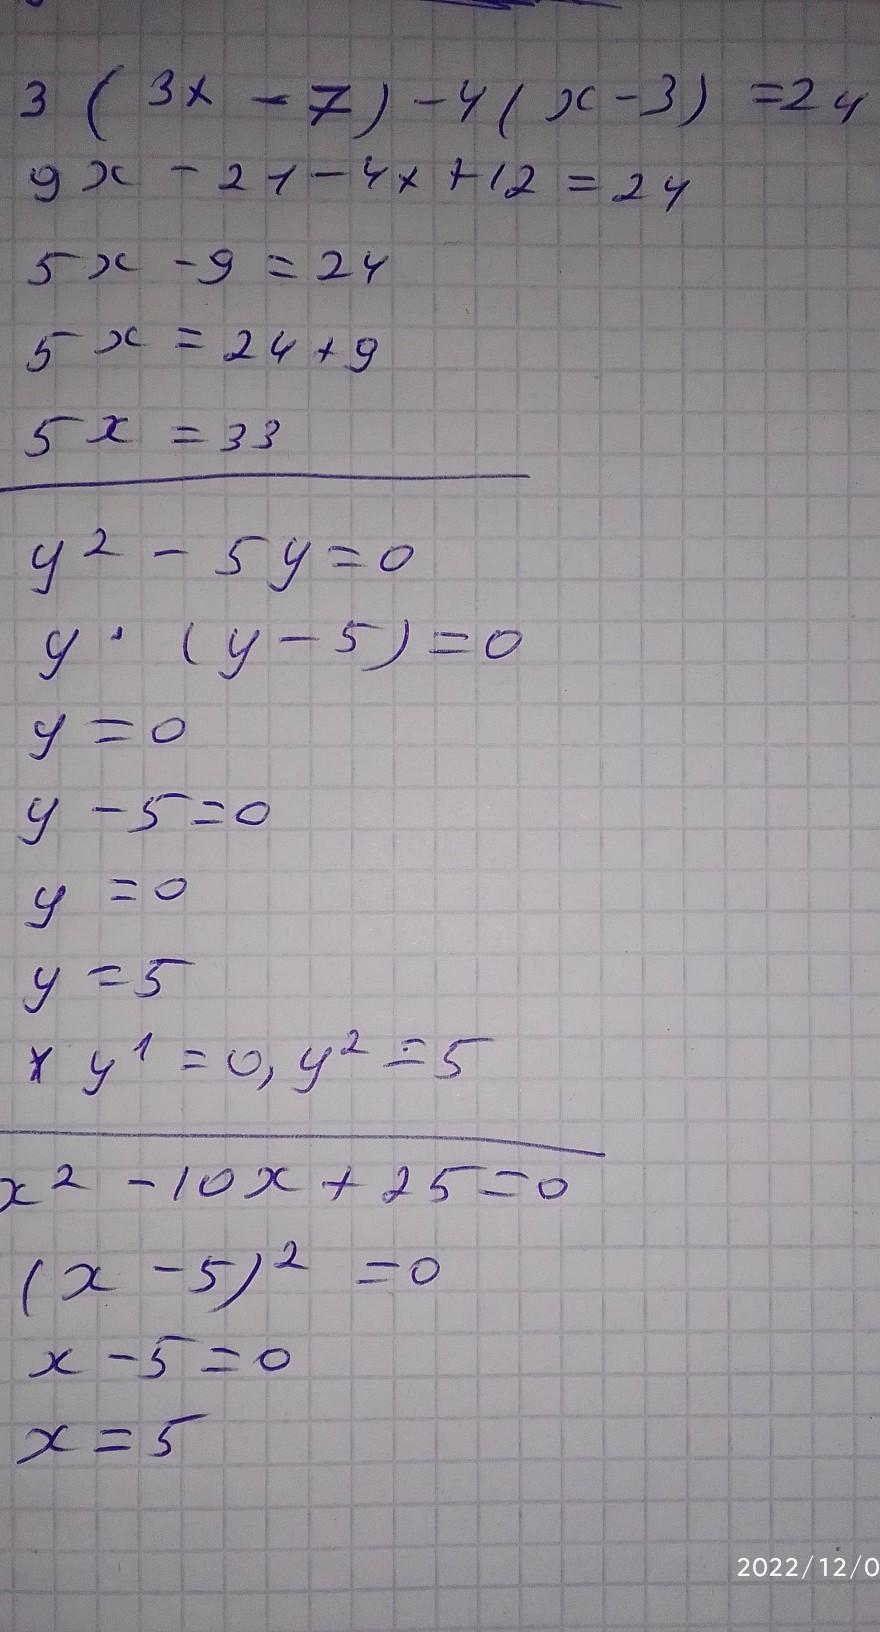 3 ( 3x - 7) - 4 ( x - 3) = 24
9x - 21 - 4x + 12 = 24
5x - 9 = 24
5x = 24 + 9
5x = 33
y² - 5y = 0
y · (y - 5) = 0
y = 0
y - 5 = 0
y = 0
y = 5
* y¹ = 0, y² = 5
x² - 10x + 25 = 0
(x - 5)² = 0
x - 5 = 0
x = 5
2022/12/0